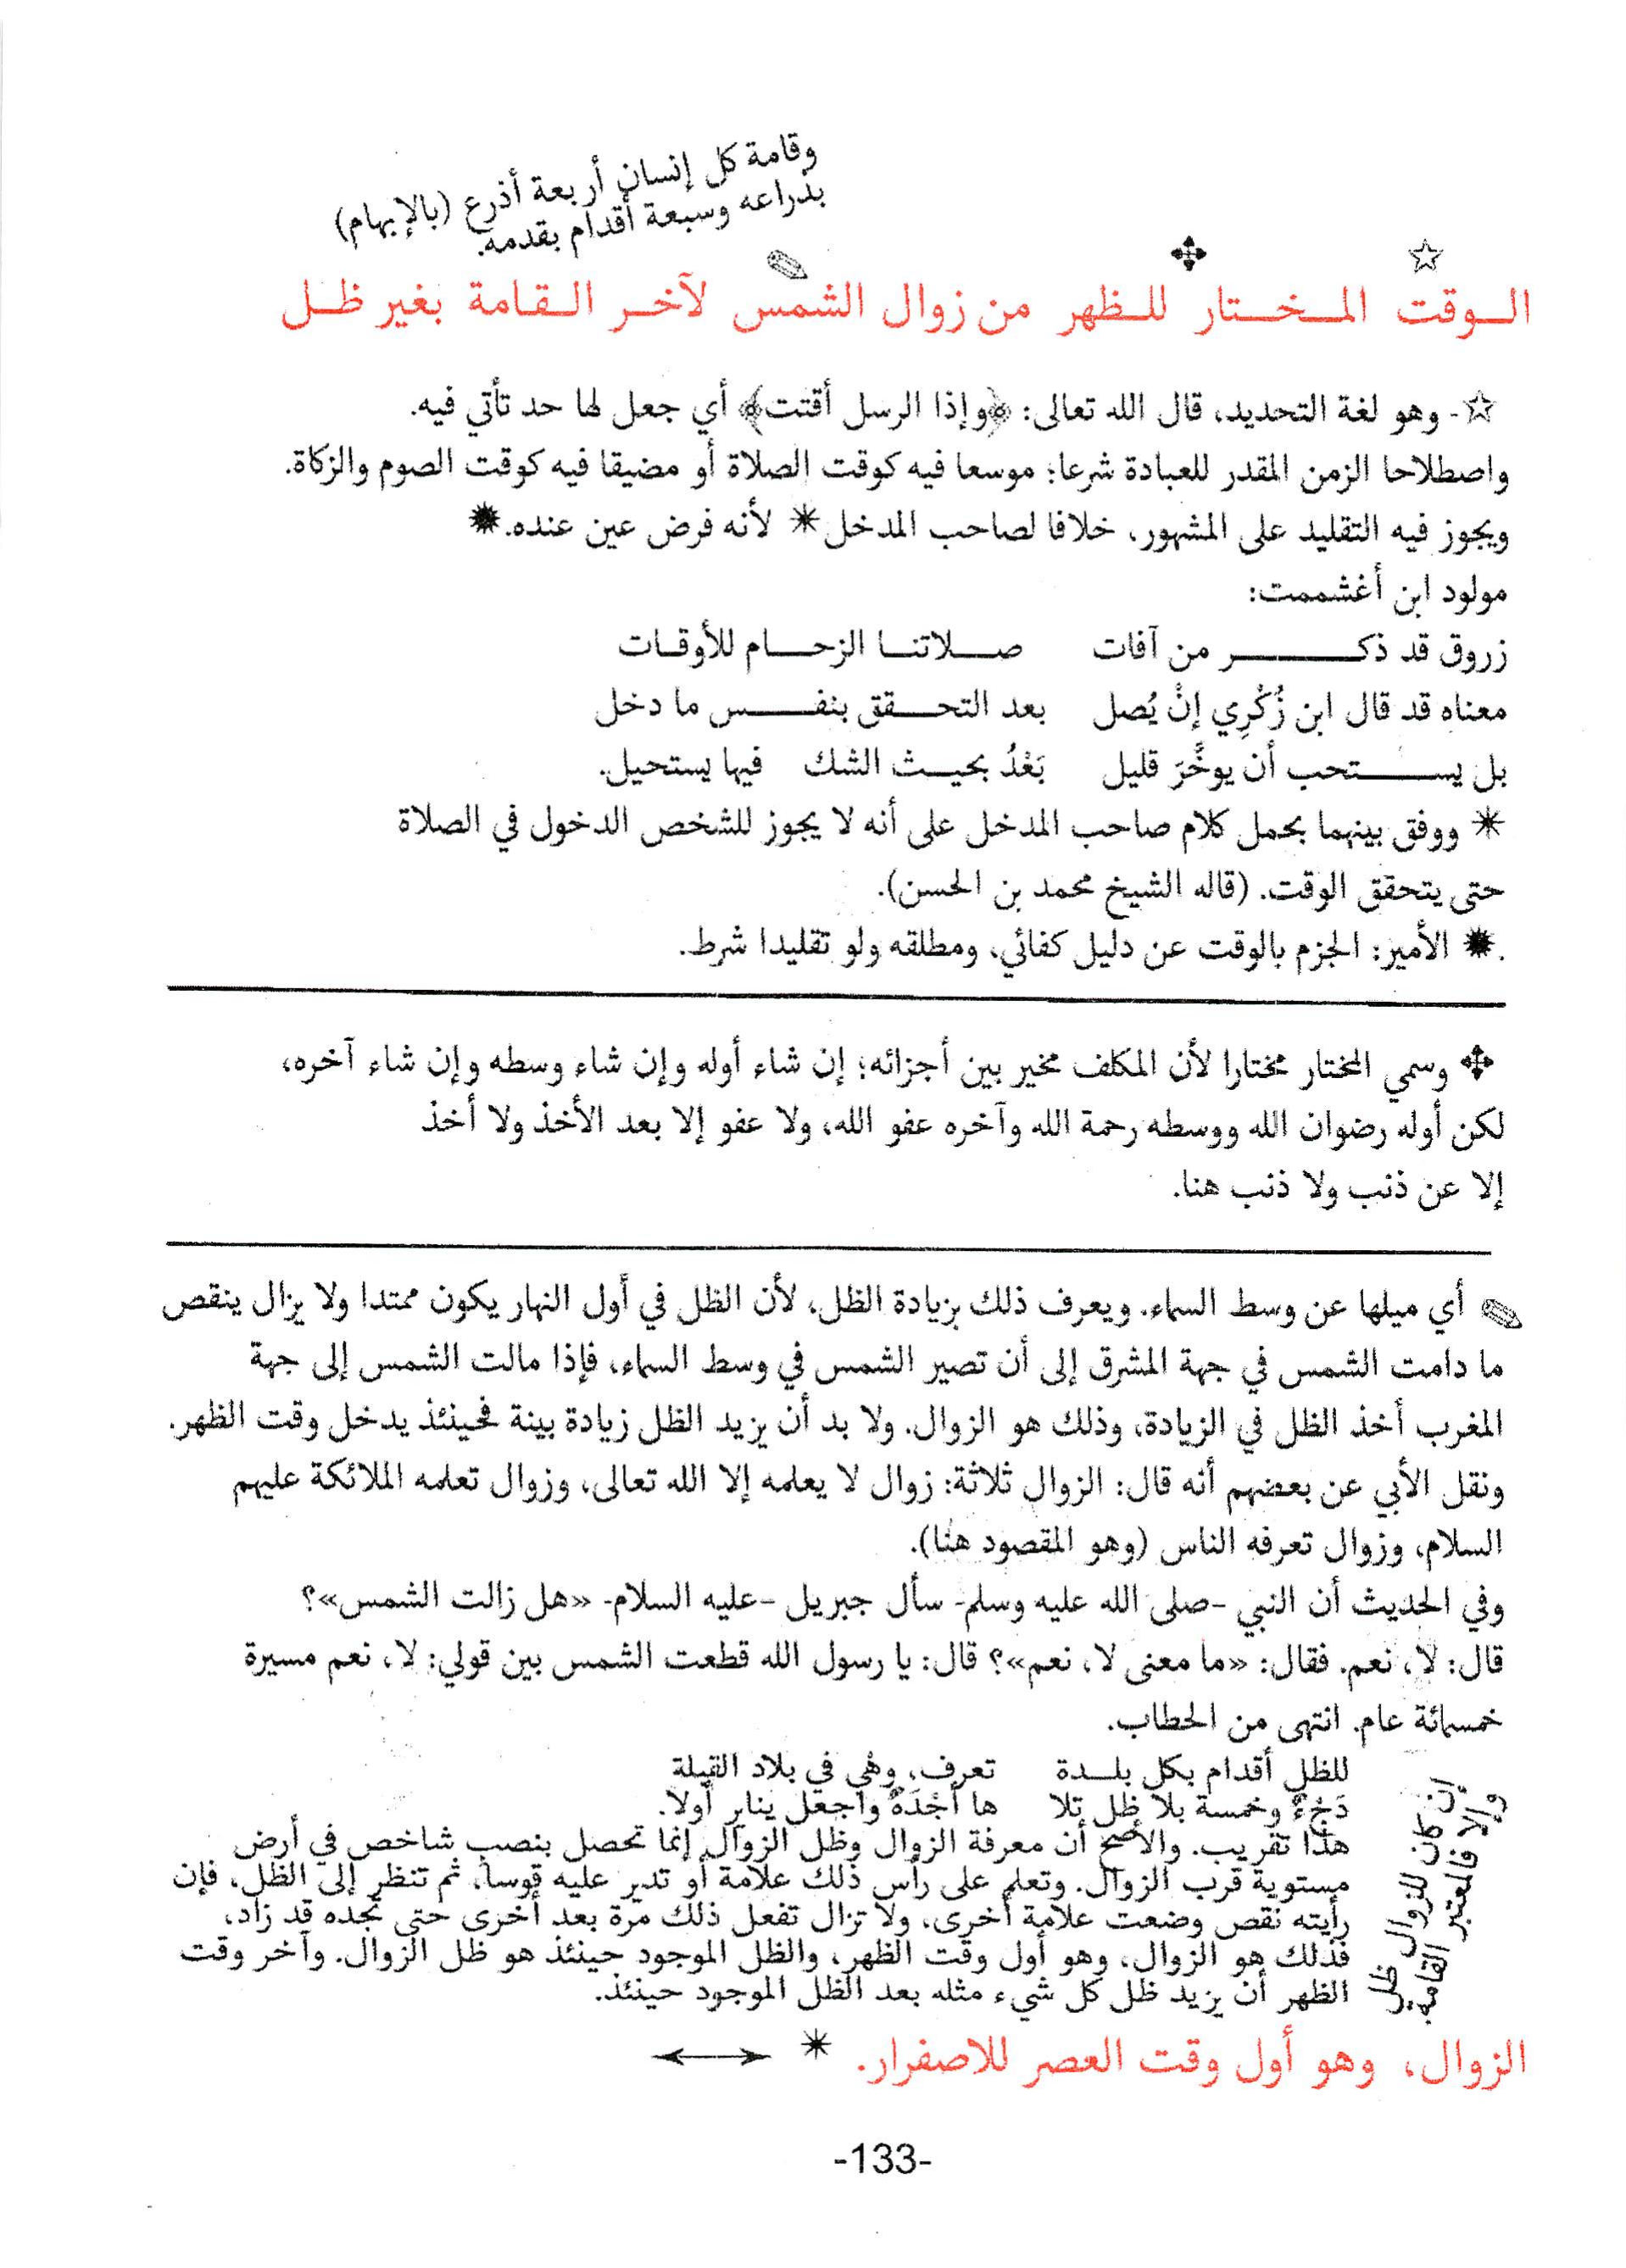 وقامة كل إنسان أربعة أذرع (بالإبهام)
بذراعه وسبعة أقدام بقدمه.
الوقت المختار للظهر من زوال الشمس لآخر القامة بغير ظل
☆- وهو لغة التحديد، قال الله تعالى: ﴿وإذا الرسل أقتت﴾ أي جعل لها حد تأتي فيه.
واصطلاحا الزمن المقدر للعبادة شرعا؛ موسعا فيه كوقت الصلاة أو مضيقا فيه كوقت الصوم والزكاة.
ويجوز فيه التقليد على المشهور، خلافا لصاحب المدخل✳ لأنه فرض عين عنده.✹
مولود ابن أغشممت:
زروق قد ذكر من آفات صلاتنا الزحام للأوقات
معناه قد قال ابن زُكْرِي إنْ يُصل بعد التحقق بنفس ما دخل
بل يستحب أن يوخَّرَ قليل بَعْدُ بحيث الشك فيها يستحيل.
✳ ووفق بينهما بحمل كلام صاحب المدخل على أنه لا يجوز للشخص الدخول في الصلاة
حتى يتحقق الوقت. (قاله الشيخ محمد بن الحسن).
✹ الأمير: الجزم بالوقت عن دليل كفائي، ومطلقه ولو تقليدا شرط.
✥ وسمي المختار مختارا لأن المكلف مخير بين أجزائه؛ إن شاء أوله وإن شاء وسطه وإن شاء آخره،
لكن أوله رضوان الله ووسطه رحمة الله وآخره عفو الله، ولا عفو إلا بعد الأخذ ولا أخذ
إلا عن ذنب ولا ذنب هنا.
✎ أي ميلها عن وسط السماء. ويعرف ذلك بزيادة الظل، لأن الظل في أول النهار يكون ممتدا ولا يزال ينقص
ما دامت الشمس في جهة المشرق إلى أن تصير الشمس في وسط السماء، فإذا مالت الشمس إلى جهة
المغرب أخذ الظل في الزيادة، وذلك هو الزوال. ولا بد أن يزيد الظل زيادة بينة فحينئذ يدخل وقت الظهر.
ونقل الأبي عن بعضهم أنه قال: الزوال ثلاثة: زوال لا يعلمه إلا الله تعالى، وزوال تعلمه الملائكة عليهم
السلام، وزوال تعرفه الناس (وهو المقصود هنا).
وفي الحديث أن النبي -صلى الله عليه وسلم- سأل جبريل -عليه السلام- «هل زالت الشمس»؟
قال: لا، نعم. فقال: «ما معنى لا، نعم»؟ قال: يا رسول الله قطعت الشمس بين قولي: لا، نعم مسيرة
خمسمائة عام. انتهى من الحطاب.
للظل أقدام بكل بلدة تعرف، وهْي في بلاد القبلة
وخمسة بلا ظل تلا ها واجعل يناير أولا.
هذا تقريب. والأصح أن معرفة الزوال وظل الزوال إنما تحصل بنصب شاخص في أرض
مستوية قرب الزوال. وتعلم على رأس ذلك علامة أو تدير عليه قوسا، ثم تنظر إلى الظل، فإن
رأيته نقص وضعت علامة أخرى، ولا تزال تفعل ذلك مرة بعد أخرى حتى تجده قد زاد،
فذلك هو الزوال، وهو أول وقت الظهر، والظل الموجود حينئذ هو ظل الزوال. وآخر وقت
الظهر أن يزيد ظل كل شيء مثله بعد الظل الموجود حينئذ.
إن كان للزوال ظل
وإلا فالمعتبر القامة
الزوال، وهو أول وقت العصر للاصفرار. ✳
-133-